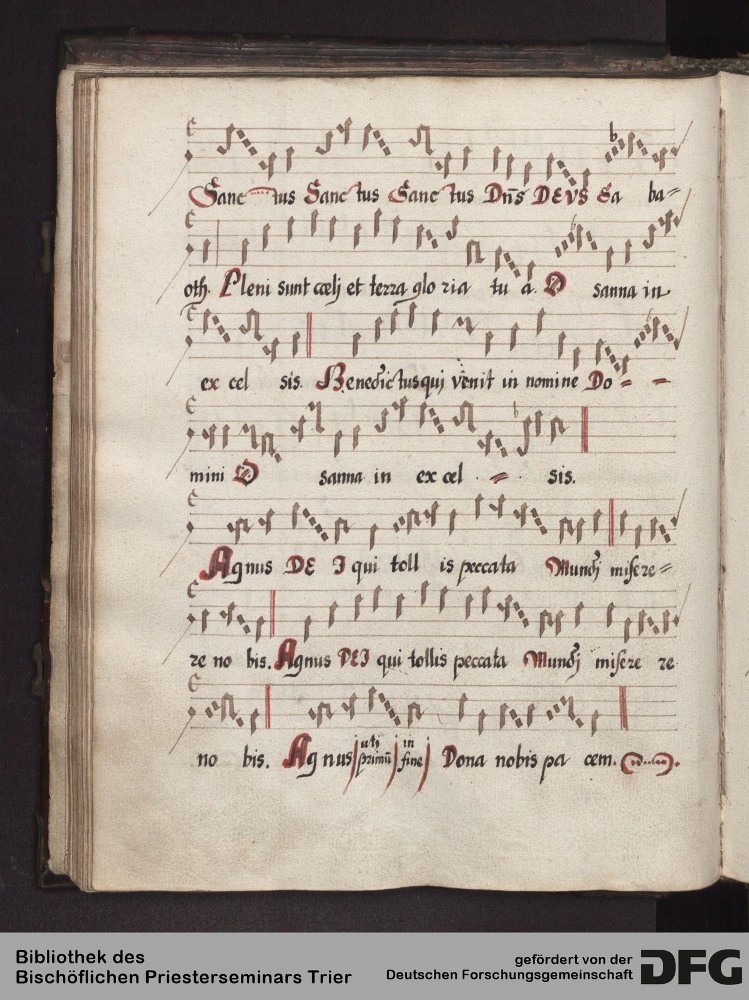 Sanc tus Sanc tus Sanc tus Dñs DEVS Sa ba=
oth. Pleni sunt cœlj et terra glo ria tu a. O sanna in
ex cel sis. Benedictus quj venit in nomine Do= =
mini O sanna in ex cel = sis.
Agnus DE I qui toll is peccata Mundj misere=
re no bis. Agnus DEI qui tollis peccata Mundj misere re
no bis. Agnus utj primũ in fine Dona nobis pa cem.
Bibliothek des
Bischöflichen Priesterseminars Trier
gefördert von der
Deutschen Forschungsgemeinschaft
DFG